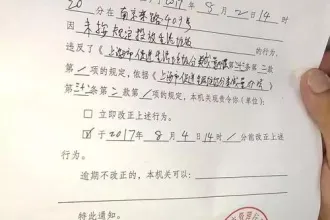 2017年8月2日14时
20分在南京东路409号
因未按规定投放生活垃圾的行为,
违反了《上海市促进生活垃圾分类减量办法》第三十条第二款
第/项的规定,依据《上海市促进生活垃圾分类减量办法》
第三十条第二款第/项的规定,本机关现责令你(单位):
□ 立即改正上述行为。
☑ 于2017年8月4日14时/分前改正上述
行为。
逾期不改正的,本机关可以:
特此通知。